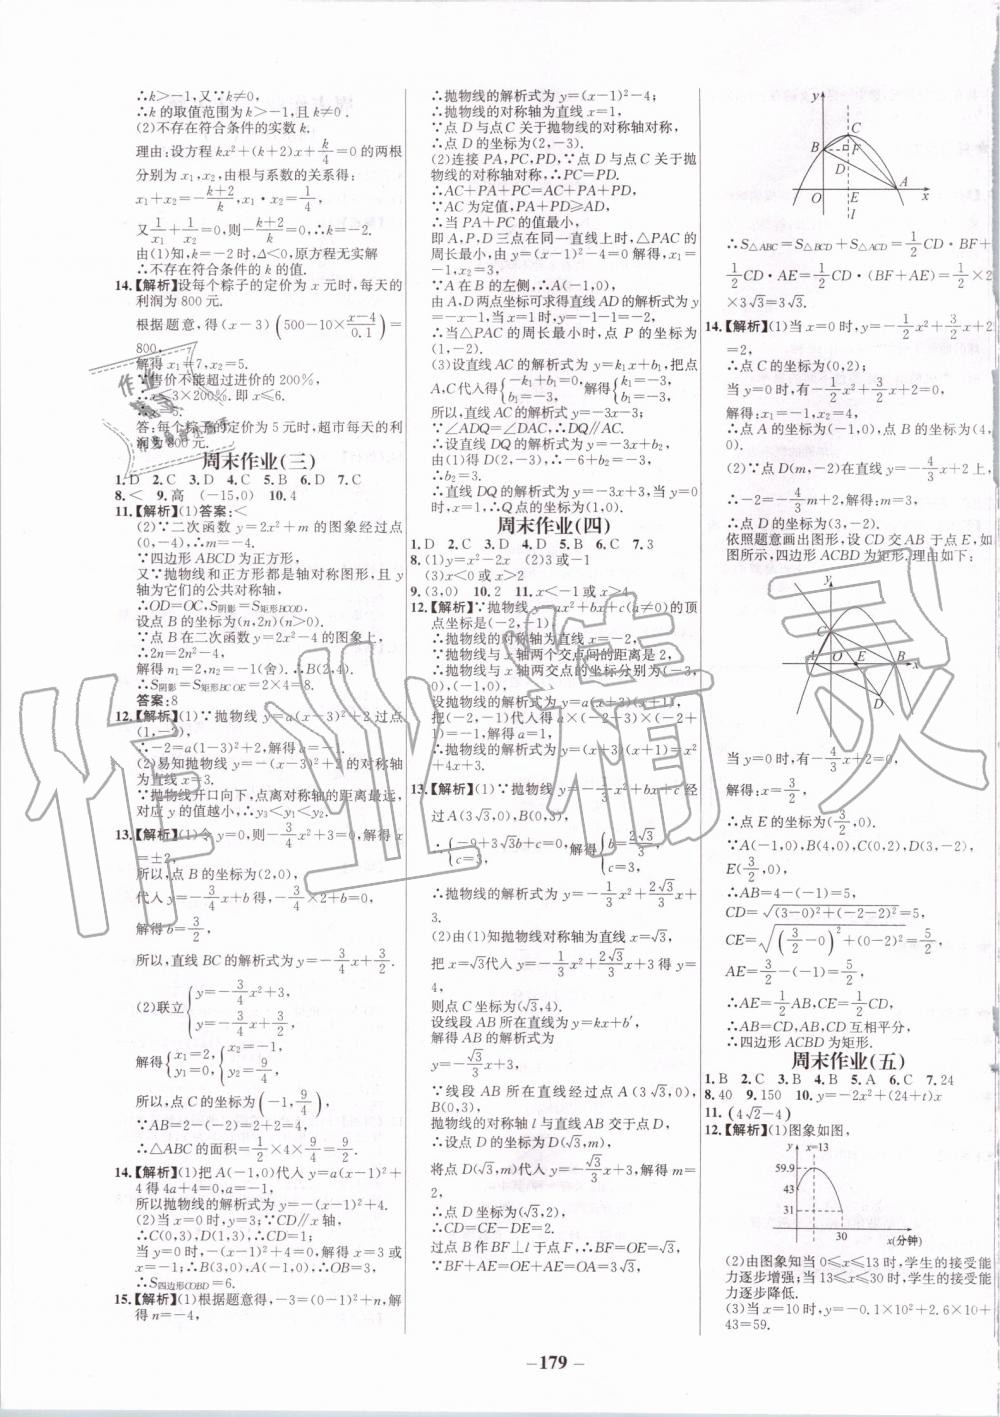 ∴k＞－1,又∵k≠0,
∴k的取值范围为k＞－1,且k≠0.
(2)不存在符合条件的实数k.
理由:设方程kx²+(k+2)x+k/4=0的两根
分别为x₁,x₂,由根与系数的关系得:
x₁+x₂=－(k+2)/k,x₁·x₂=1/4,
又1/x₁+1/x₂=0,则－(k+2)/k=0,∴k=－2.
由(1)知,k=－2时,Δ＜0,原方程无实解
∴不存在符合条件的k的值.
14.【解析】设每个粽子的定价为x元时,每天的
利润为800元.
根据题意,得(x－3)(500－10×(x－4)/0.1)=
800,
解得x₁=7,x₂=5.
∵售价不能超过进价的200%,
∴x≤3×200%.即x≤6.
∴x=5.
答:每个粽子的定价为5元时,超市每天的利
润为800元.
周末作业(三)
1.D 2.C 3.D 4.C 5.B 6.D 7.C
8.＜ 9.高 (－15,0) 10.4
11.【解析】(1)答案:＜
(2)∵二次函数y=2x²+m的图象经过点
(0,－4),∴m=－4.
∵四边形ABCD为正方形,
又∵抛物线和正方形都是轴对称图形,且y
轴为它们的公共对称轴,
∴OD=OC,S阴影=S矩形BCOE.
设点B的坐标为(n,2n)(n＞0).
∵点B在二次函数y=2x²－4的图象上,
∴2n=2n²－4,
解得n₁=2,n₂=－1(舍).∴B(2,4).
∴S阴影=S矩形BCOE=2×4=8.
答案:8
12.【解析】(1)∵抛物线y=a(x－3)²+2过点
(1,－2),
∴－2=a(1－3)²+2,解得a=－1.
(2)易知抛物线y=－(x－3)²+2的对称轴
为直线x=3.
∵抛物线开口向下,点离对称轴的距离越远,
对应y的值越小,∴y₃＜y₁＜y₂.
13.【解析】(1)令y=0,则－3/4x²+3=0,解得x
=±2,
所以,点B的坐标为(2,0),
代入y=－3/4x+b得,－3/4×2+b=0,
解得b=3/2,
所以,直线BC的解析式为y=－3/4x+3/2.
(2)联立{y=－3/4x²+3, y=－3/4x+3/2,
解得{x₁=2, y₁=0, {x₂=－1, y₂=9/4,
所以,点C的坐标为(－1,9/4),
∵AB=2－(－2)=2+2=4,
∴△ABC的面积=1/2×4×9/4=9/2.
14.【解析】(1)把A(－1,0)代入y=a(x－1)²+
4得4a+4=0,a=－1,
所以抛物线的解析式为y=－(x－1)²+4.
(2)当x=0时,y=3;∵CD∥x轴,
∴C(0,3),D(1,3),∴CD=1;
当y=0时,－(x－1)²+4=0,解得x=3或
x=－1;∴B(3,0),A(－1,0),∴OB=3;
∴S四边形COBD=6.
15.【解析】(1)根据题意得,－3=(0－1)²+n,解
得n=－4,
∴抛物线的解析式为y=(x－1)²－4;
∴抛物线的对称轴为直线x=1,
∵点D与点C关于抛物线的对称轴对称,
∴点D的坐标为(2,－3).
(2)连接PA,PC,PD,∵点D与点C关于抛
物线的对称轴对称,∴PC=PD.
∴AC+PA+PC=AC+PA+PD,
∵AC为定值,PA+PD≥AD,
∴当PA+PC的值最小,
即A,P,D三点在同一直线上时,△PAC的
周长最小,由y=(x－1)²－4=0解得,x₁=
－1,x₂=3,
∵A在B的左侧,∴A(－1,0),
由A,D两点坐标可求得直线AD的解析式为y
=－x－1,当x=1时,y=－1－1=－2,
∴当△PAC的周长最小时,点P的坐标为
(1,－2).
(3)设直线AC的解析式为y=k₁x+b₁,把点
A,C代入得{－k₁+b₁=0, b₁=－3, 解得{k₁=－3, b₁=－3,
所以,直线AC的解析式为y=－3x－3;
∵∠ADQ=∠DAC,∴DQ∥AC.
∴设直线DQ的解析式为y=－3x+b₂,
由(1)得D(2,－3),∴－6+b₂=－3,
∴b₂=3.
∴直线DQ的解析式为y=－3x+3,令y=0得
x=1,∴Q点的坐标为(1,0).
周末作业(四)
1.D 2.C 3.D 4.D 5.B 6.C 7.3
8.(1)y=x²－2x (2)3或－1
(3)x＜0或x＞2
9.(3,0) 10.2 11.x＜－1或x＞4
12.【解析】∵抛物线y=ax²+bx+c(a≠0)的顶
点坐标是(－2,－1),
∴抛物线的对称轴为直线x=－2,
∵抛物线与x轴两个交点间的距离是2,
∴抛物线与x轴两交点的坐标分别为(－3,
0),(－1,0),
设抛物线的解析式为y=a(x+3)(x+1),
把(－2,－1)代入得a×(－2+3)×(－2+
1)=－1,解得a=1,
∴抛物线的解析式为y=(x+3)(x+1)=x²
+4x+3.
13.【解析】(1)∵抛物线y=－1/3x²+bx+c经
过点A(3√3,0),B(0,3),
∴{－9+3√3b+c=0, c=3, 解得{b=2√3/3, c=3,
∴抛物线的解析式为y=－1/3x²+2√3/3x+
3.
(2)由(1)知抛物线对称轴为直线x=√3,
把x=√3代入y=－1/3x²+2√3/3x+3得,y=
4,
则点C坐标为(√3,4),
设线段AB所在直线为y=kx+b′,
解得AB的解析式为
y=－√3/3x+3,
∵线段AB所在直线经过点A(3√3,0),
B(0,3),
抛物线的对称轴l与直线AB交于点D,
∴设点D的坐标为D(√3,m),
将点D(√3,m)代入y=－√3/3x+3,解得m=
2,
∴点D坐标为(√3,2),
∴CD=CE－DE=2.
过点B作BF⊥l于点F,∴BF=OE=√3,
∵BF+AE=OE+AE=OA=3√3,
y
C
B
F
D
A
O
E
x
l
∴S△ABC=S△BCD+S△ACD=1/2CD·BF+
1/2CD·AE=1/2CD·(BF+AE)=1/2×2
×3√3=3√3.
14.【解析】(1)当x=0时,y=－1/2x²+3/2x+2
=2,
∴点C的坐标为(0,2);
当y=0时,有－1/2x²+3/2x+2=0,
解得:x₁=－1,x₂=4,
∴点A的坐标为(－1,0),点B的坐标为(4,
0).
(2)∵点D(m,－2)在直线y=－4/3x+2上,
∴－2=－4/3m+2,解得:m=3,
∴点D的坐标为(3,－2).
依照题意画出图形,设CD交AB于点E,如
图所示,四边形ACBD为矩形.理由如下:
y
C
A
O
E
B
x
D
当y=0时,有－4/3x+2=0,
解得:x=3/2,
∴点E的坐标为(3/2,0).
∵A(－1,0),B(4,0),C(0,2),D(3,－2),
E(3/2,0),
∴AB=4－(－1)=5,
CD=√((3－0)²+(－2－2)²)=5,
CE=√((3/2－0)²+(0－2)²)=5/2,
AE=3/2－(－1)=5/2,
∴AE=1/2AB,CE=1/2CD,
∴AB=CD,AB、CD互相平分,
∴四边形ACBD为矩形.
周末作业(五)
1.B 2.C 3.B 4.B 5.A 6.C 7.24
8.40 9.150 10.y=－2x²+(24+t)x
11.(4√2－4)
12.【解析】(1)图象如图,
y
x=13
59.9
43
31
30
x(分钟)
(2)由图象知当0≤x≤13时,学生的接受能
力逐步增强;当13≤x≤30时,学生的接受能
力逐步降低.
(3)当x=10时,y=－0.1×10²+2.6×10+
43=59.
－179－
作业精灵